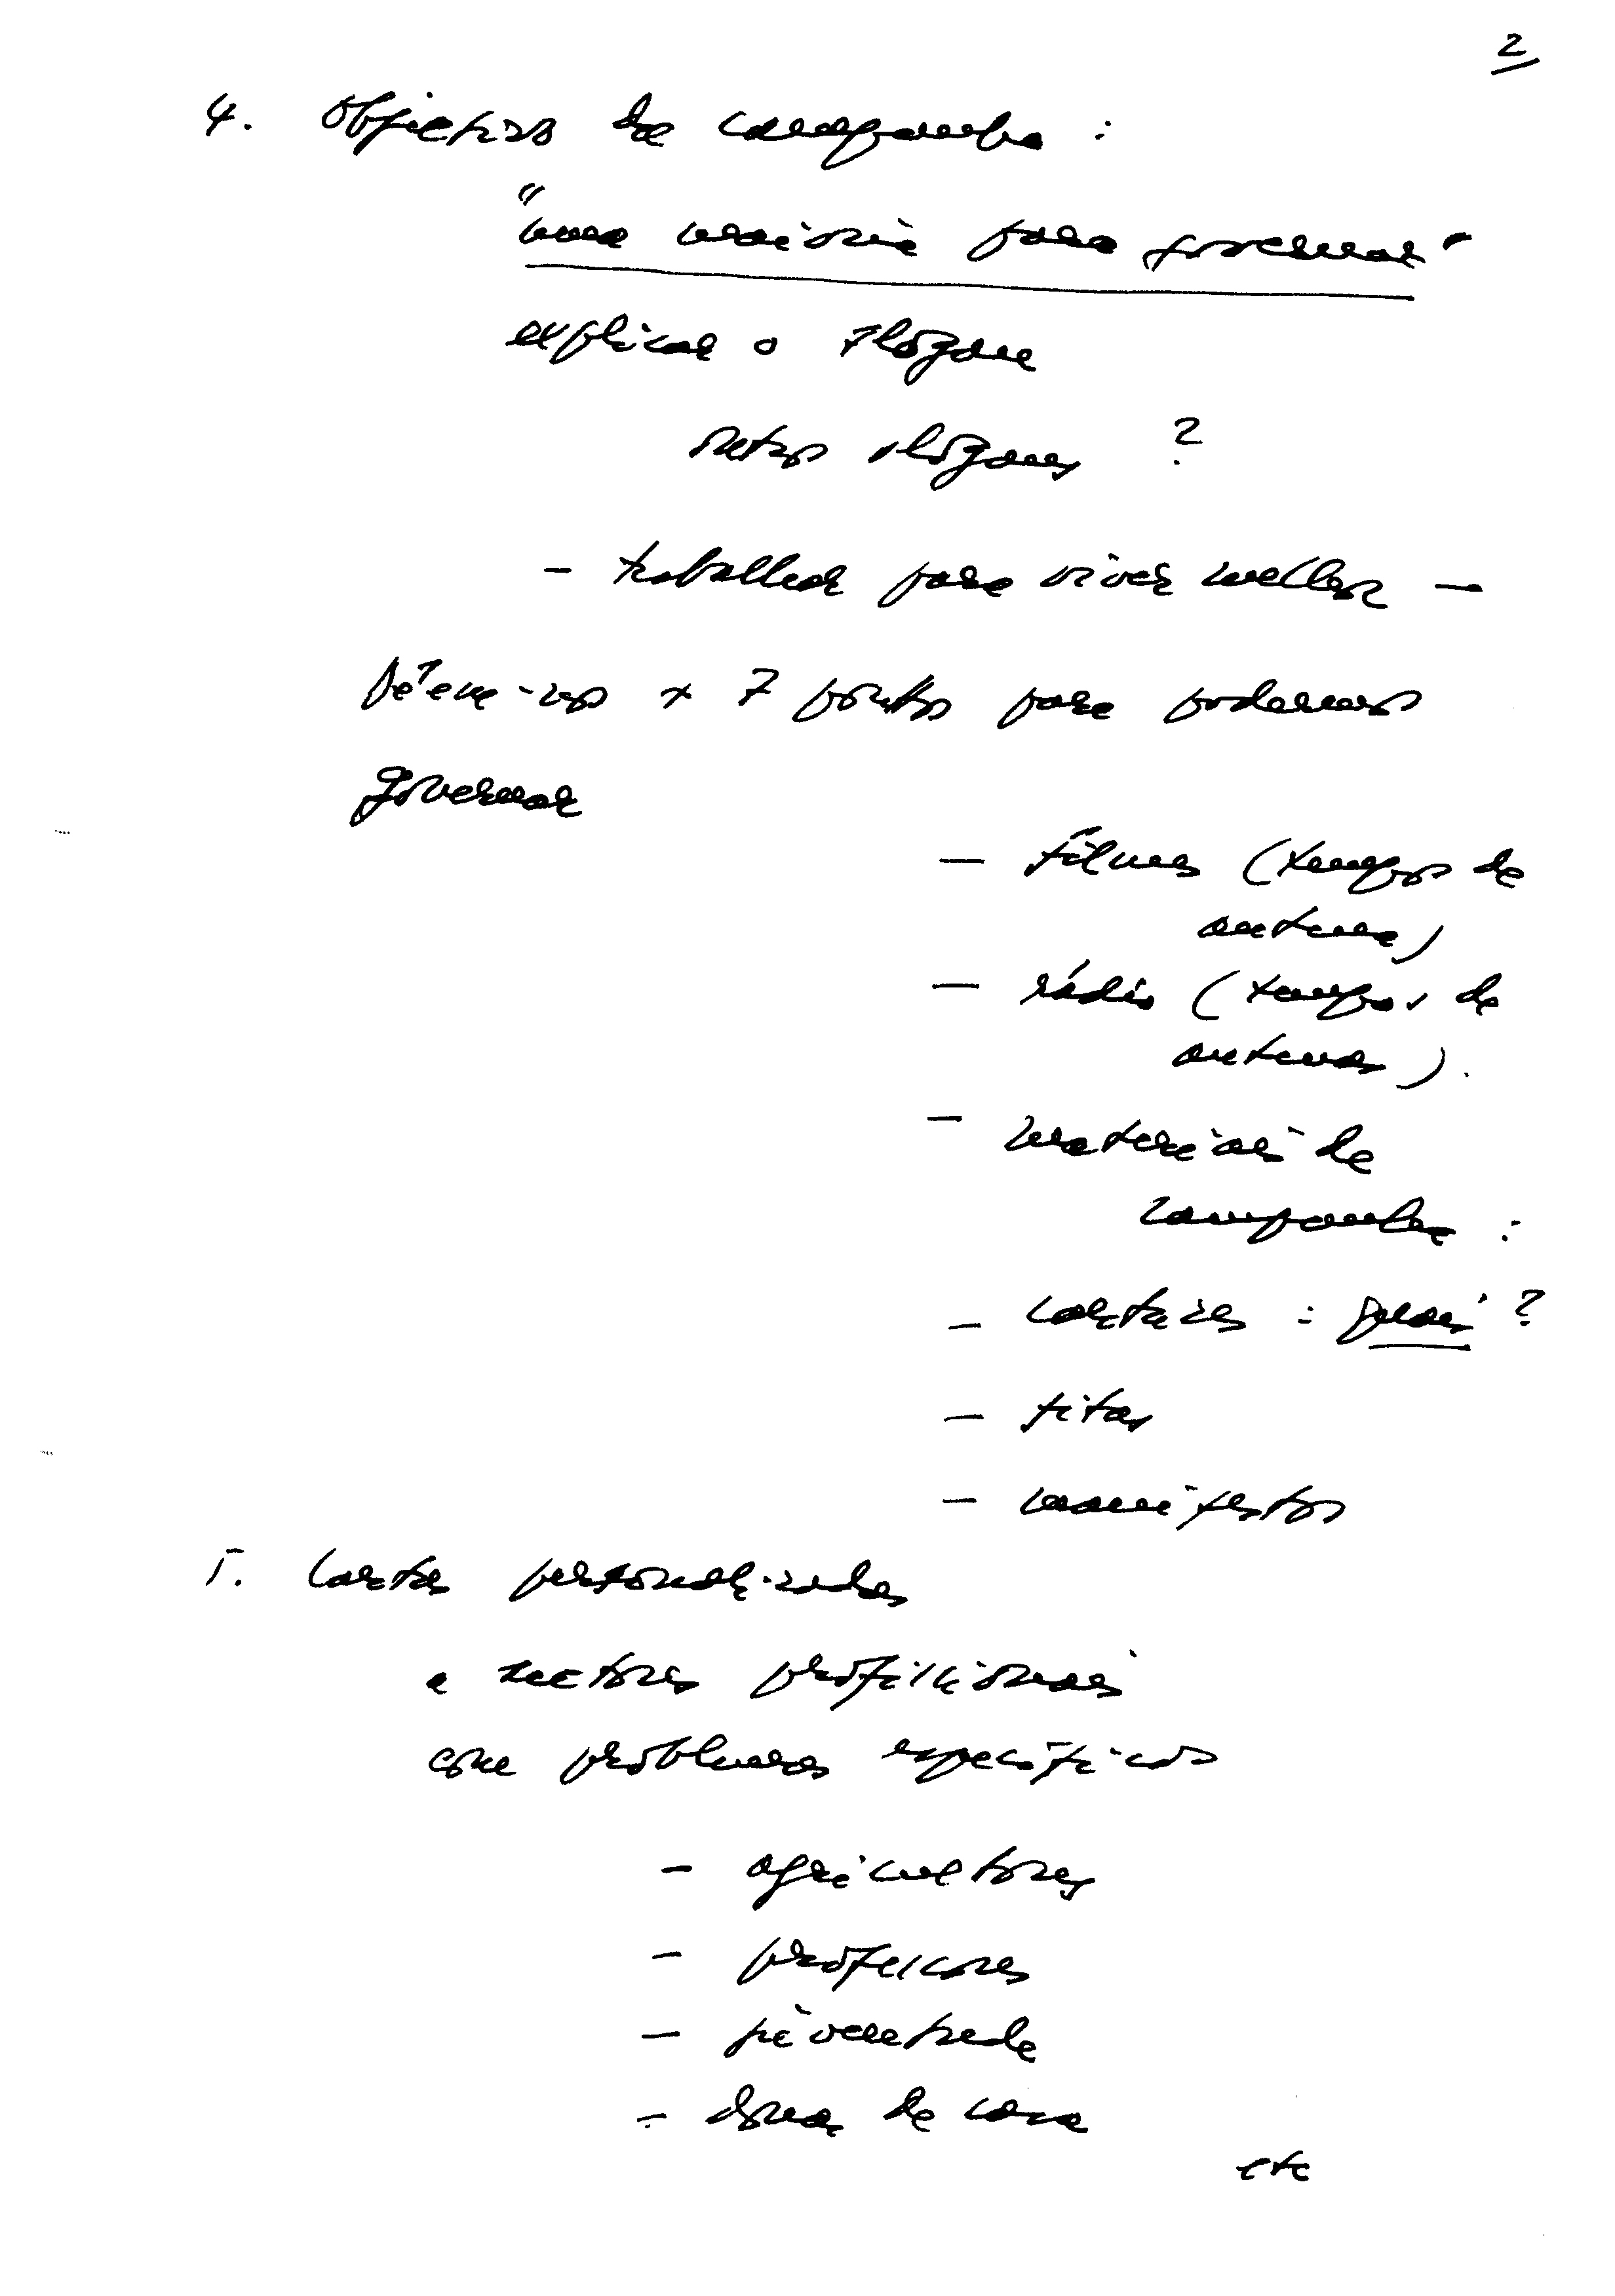 2
4. Objectivos da campanha :
"uma maioria para governar"
explicar o slogan
outros slogans ?
- trabalhar para viver melhor -
+ 7 pontos para podermos
governar
- filmes (tempos de
antena)
- rádio (tempos de
antena).
- materiais de
campanha :
- cartazes : quais ?
- fitas
- manifestos
5. Cartas personalizadas
a sectores profissionais
com problemas específicos
- agricultores
- professores
- juventude
- donas de casa
etc